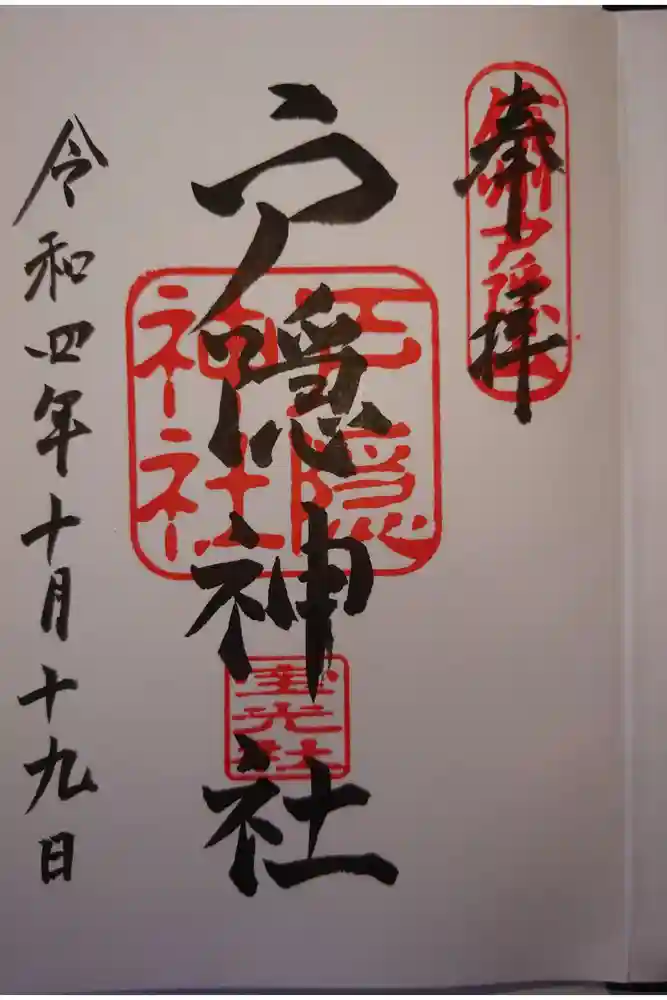 奉拝
信州戸隠
戸隠神社
戸隠
神社
宝光社
令和四年十月十九日